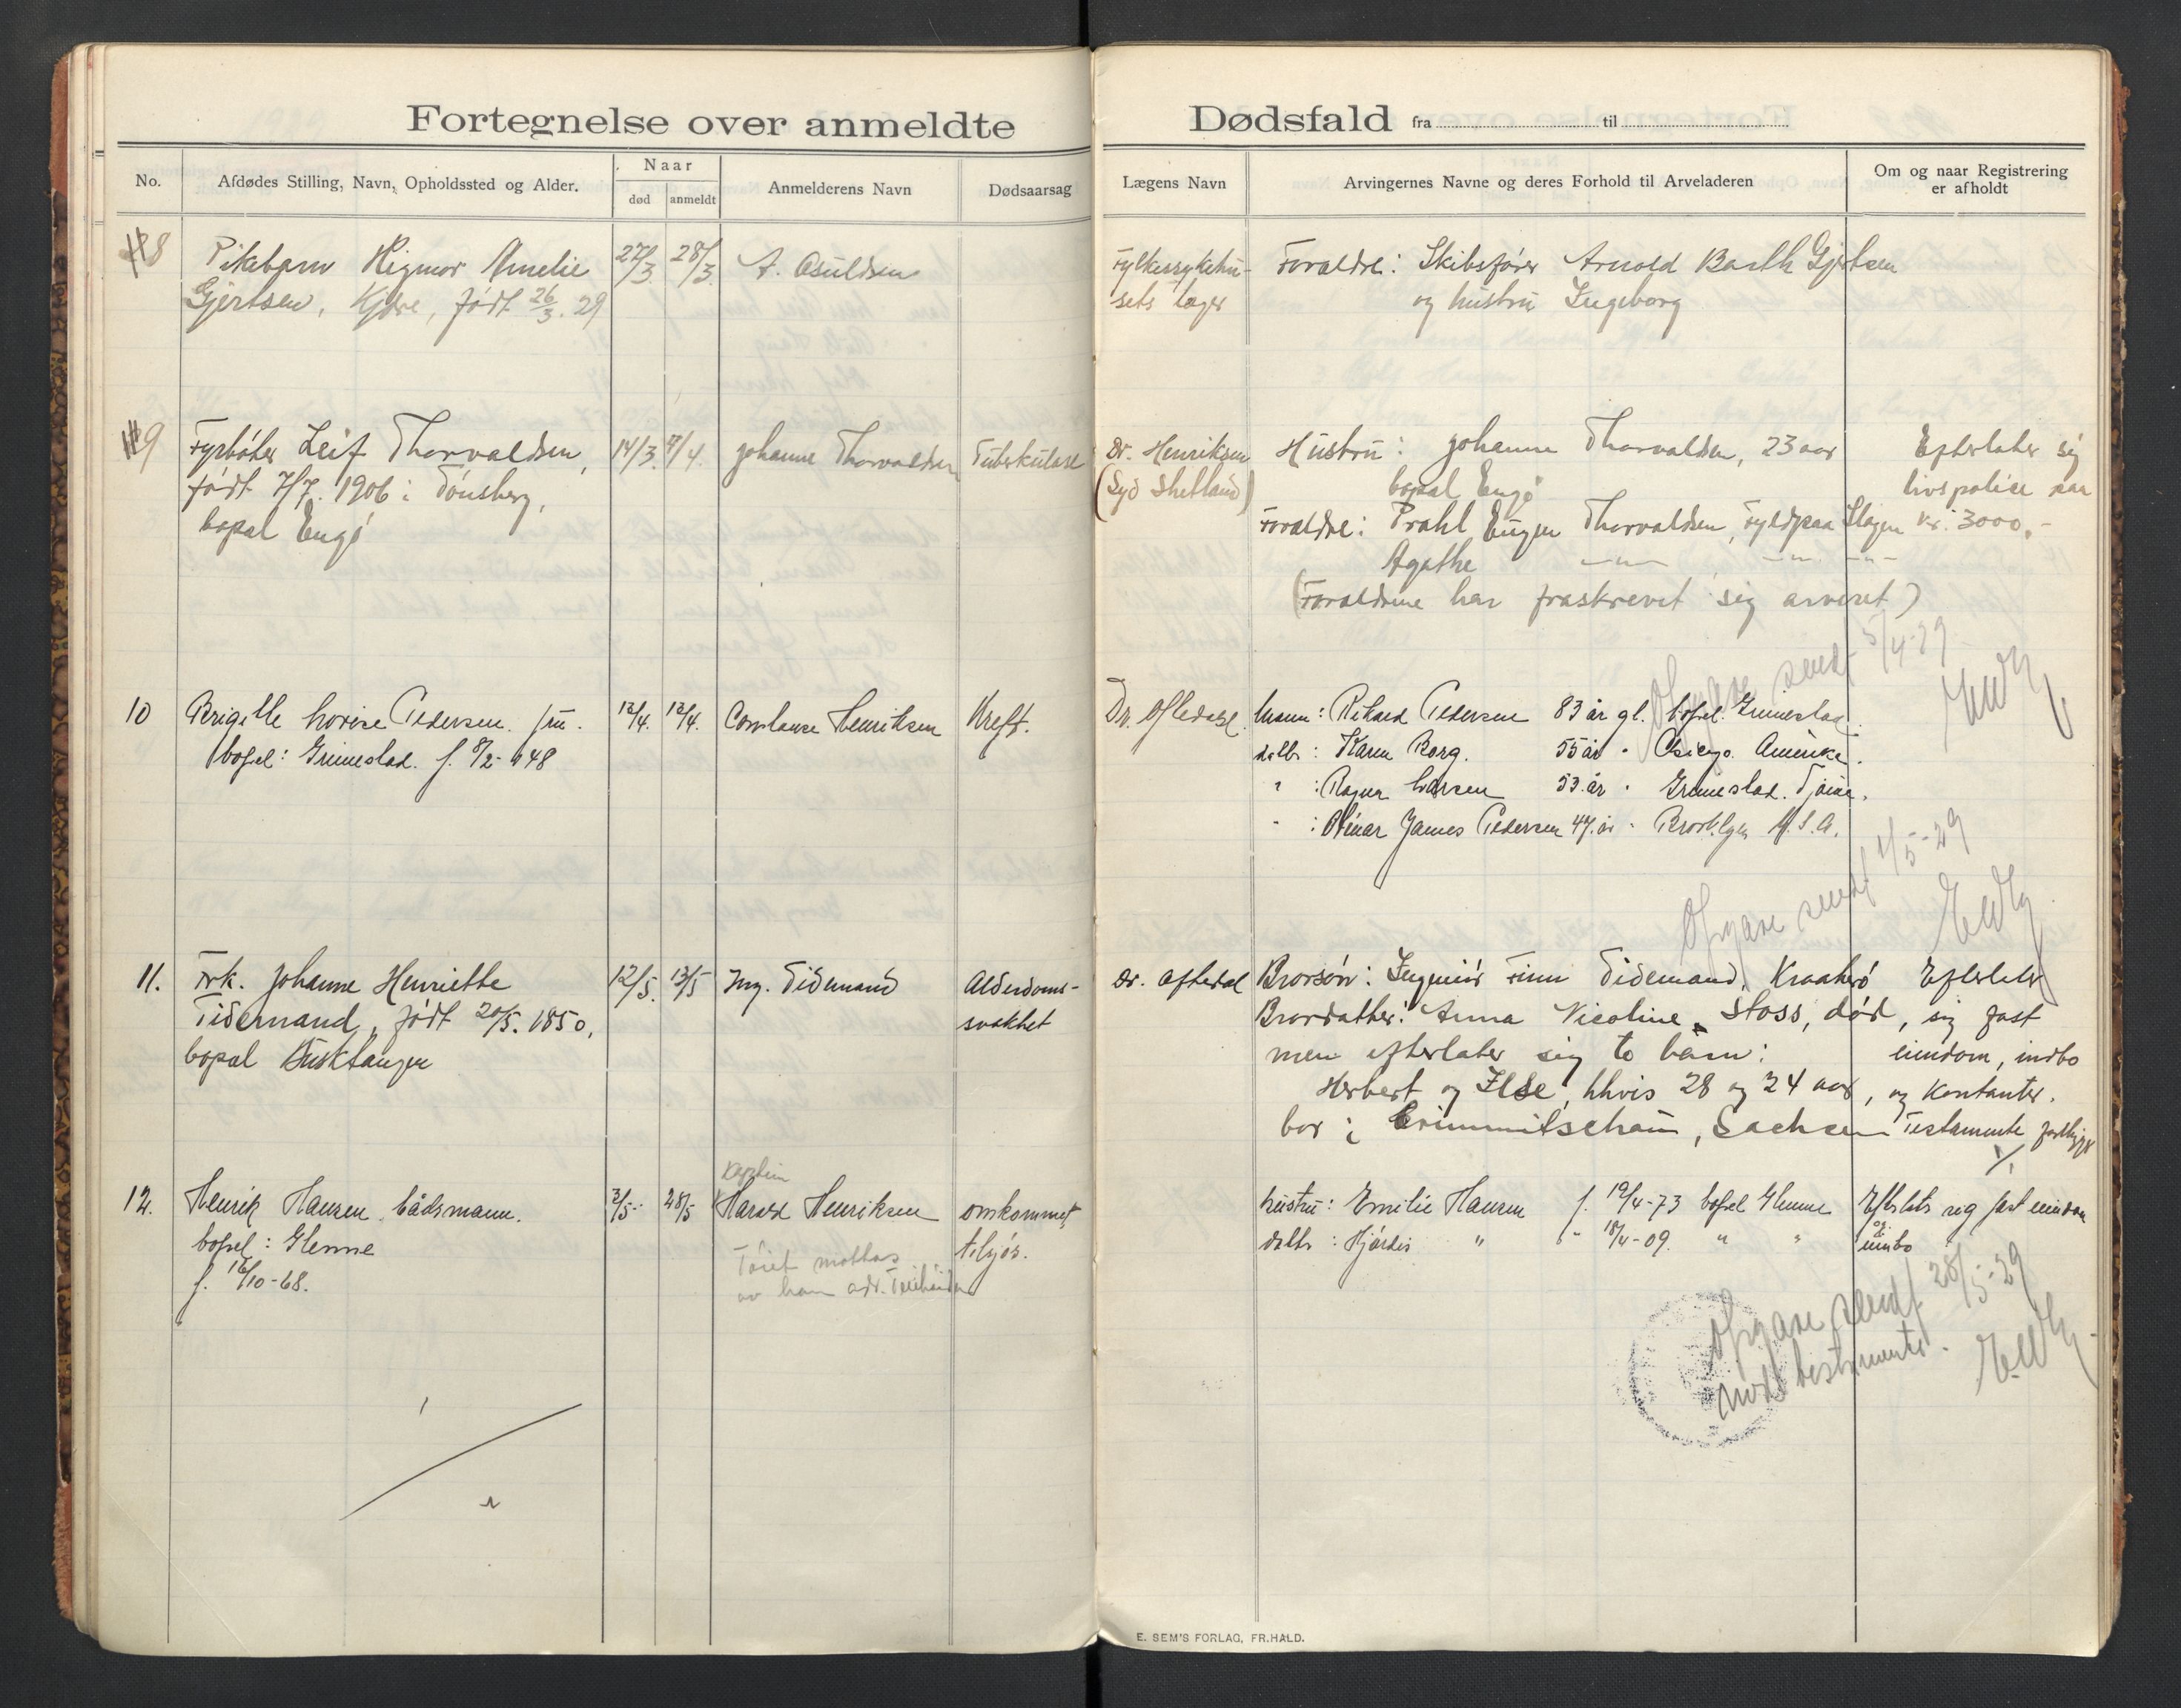 Fortegnelse over anmeldte Dødsfald fra til
No.
Afdødes Stilling, Navn, Opholdssted og Alder.
Naar
død
anmeldt
Anmelderens Navn
Dødsaarsag
Lægens Navn
Arvingernes Navne og deres Forhold til Arveladeren
Om og naar Registrering
er afholdt
8
Pikebarn Rigmor Amelie
Gjertsen, Kjøre, født 26/3. 29
27/3.
28/3.
A. Asuldsen
Fylkessykehu-
sets læger
Forældre: Skibsfører Arnold Barth Gjertsen
og hustru Ingeborg
9
Fyrbøter Leif Thorvaldsen,
født 7/7. 1906 i Tønsberg,
bopæl Engø
14/3.
4/4.
Johanne Thorvaldsen
Tuberkulose
Dr. Henriksen
(Syd Shetland)
Hustru: Johanne Thorvaldsen, 23 aar
bopæl Engø
Forældre: Prahl Eugen Thorvaldsen, Fyldpaa Slagen
Agathe —"— —"— —"—
(Forældrene har fraskrevet sig arveret)
Efterlater sig
livspolise paa
kr. 3000.-
Opgave sendt 5/4-29
10
Brigitte Lovise Pedersen. fru.
bopel: Grimestad. f. 8/2-1848
12/4.
13/4.
Constance Henriksen
Kreft.
Dr. Oftedal.
Mann: Rikard Pedersen 83 år gl. bopel. Grimestad.
datter: Karen Borg. 55 år " Chicago. Amerika.
" : Ragna Larsen 53. år " Grimestad. Tjøme.
" : Einar James Pedersen 44. år " Brooklyn U.S.A.
Opgave sendt 1/5-29
11.
Frk. Johanne Henriette
Tidemand, født 20/5. 1850,
bopæl Busktangen
12/5.
13/5
Ing. Tidemand
Alderdoms-
svakhet
Dr. Oftedal
Brorsøn: Ingeniør Finn Tidemand, Kraakerø
Brordatter: Anna Nicoline Stoss, død,
men efterlater sig to barn:
Herbert og Ilse, hhvis 28 og 24 aar,
bor i Crimmitschau, Sachsen
Efterlater
sig fast
eiendom, indbo
og kontanter.
Testamente foreligger
12.
Henrik Hansen, båtsmann.
bopel: Glenne
f. 16/10-68.
3/5-
28/5
Kaptein
Harald Henriksen
Tøiet mottas
av ham adr.
omkommet
tilsjøs.
hustru: Emilie Hansen f. 19/4-73 bopel Glenne
datter: Hjørdis " f- 18/4-09. " "
Efterlater sig fast eiendom
og
innbo
Opgave sendt 28/5-29
E. SEM'S FORLAG, FR.HALD.